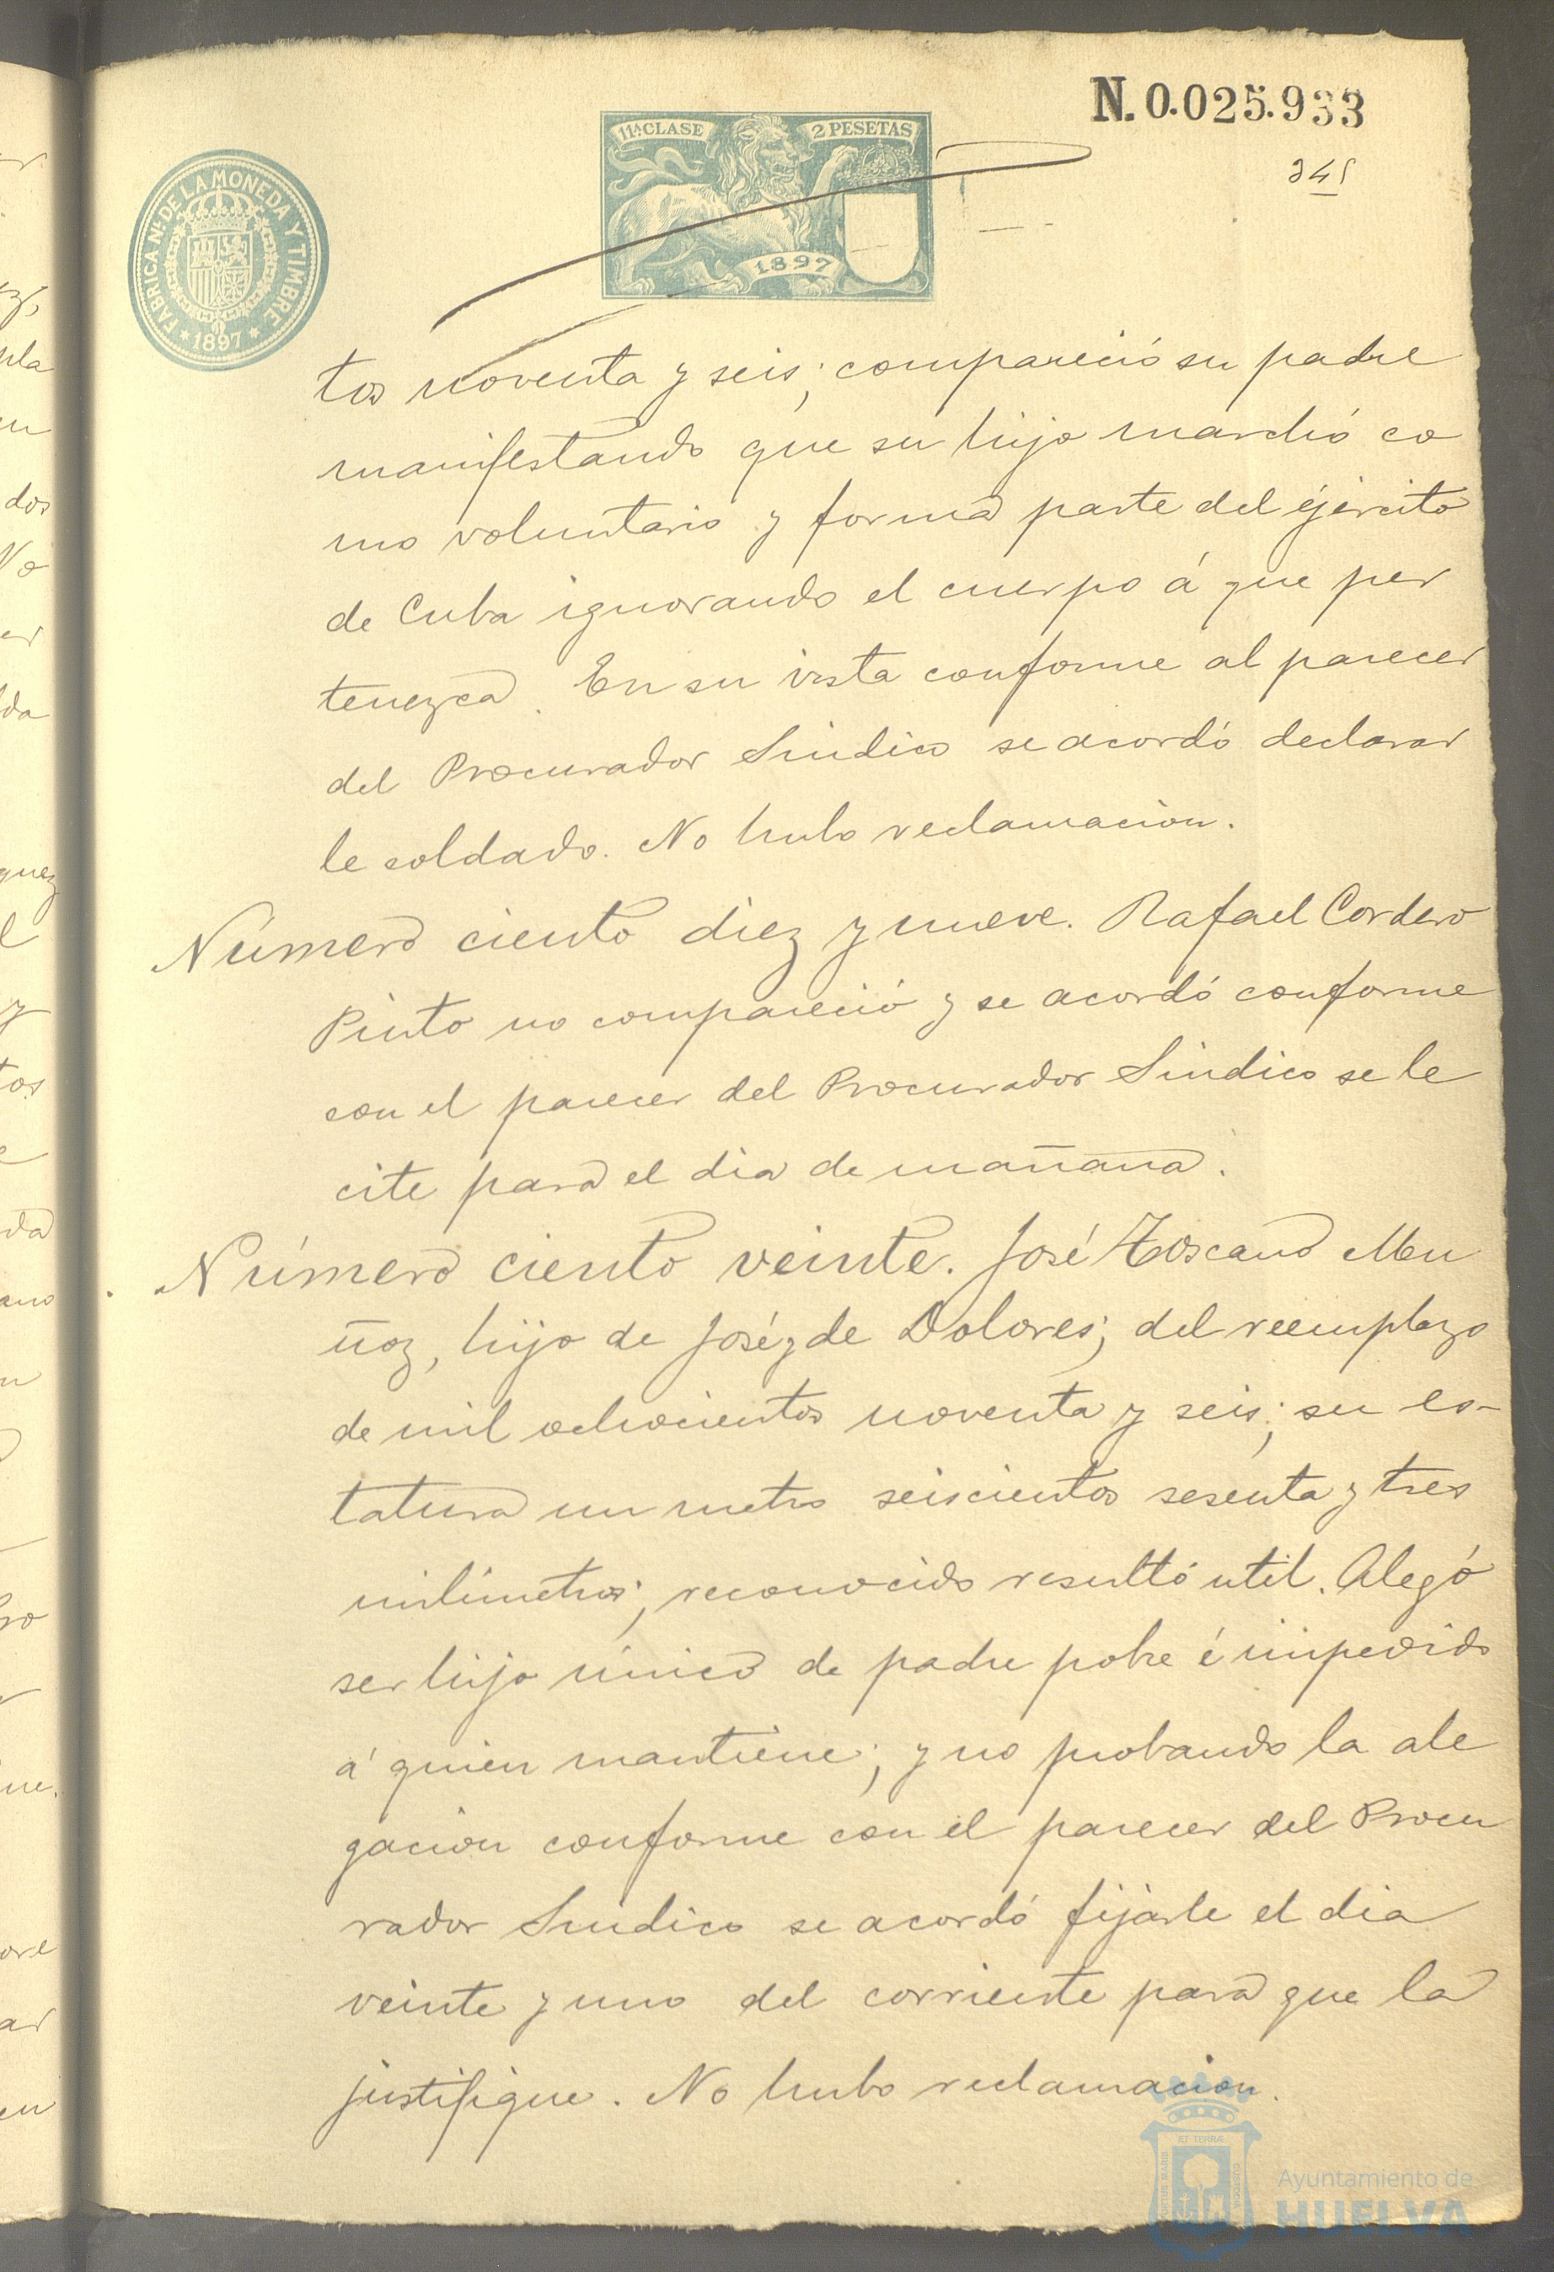 N. 0.025.933
11ª CLASE 2 PESETAS
1897
FABRICA Nal DE LA MONEDA Y TIMBRE
* 1897 *
tos noventa y seis; compareció su padre
manifestando que su hijo marchó co
mo voluntario y forma parte del ejército
de Cuba ignorando el cuerpo á que per
tenezca. En su vista conforme al parecer
del Procurador Sindico se acordó declarar
le soldado. No hubo reclamacion.
Número ciento diez y nueve. Rafael Cordero
Pinto no compareció y se acordó conforme
con el parecer del Procurador Sindico se le
cite para el dia de mañana.
Número ciento veinte. José Toscano Mu
ñoz, hijo de José y de Dolores; del reemplazo
de mil ochocientos noventa y seis; su es-
tatura un metro seiscientos sesenta y tres
milimetros; reconocido resultó util. Alegó
ser hijo único de padre pobre é impedido
á quien mantiene; y no probando la ale
gacion conforme con el parecer del Procu
rador Sindico se acordó fijarle el dia
veinte y uno del corriente para que la
justifique. No hubo reclamacion.
Ayuntamiento de
HUELVA